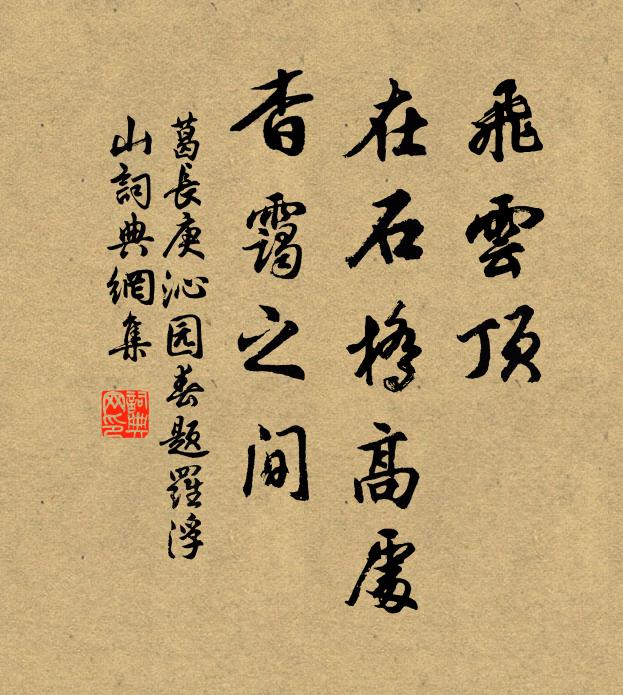 飛雲頂
在石橋高處
杳靄之間
葛長庚沁园春题羅浮
山詞典網集
詞典
网印